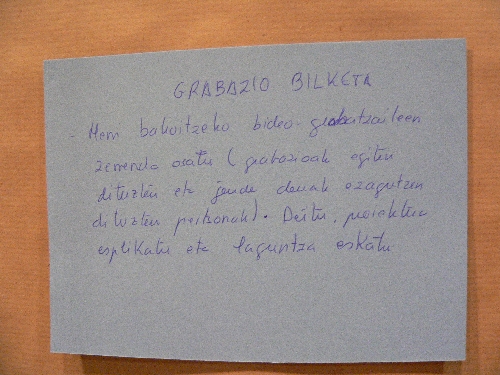 GRABAZIO BILKETA
- Herri bakoitzeko bideo grabatzaileen
zerrenda osatu (grabazioak egiten
dituzten eta jende denak ezagutzen
dituzten pertsonak). Deitu, proiektua
esplikatu eta laguntza eskatu